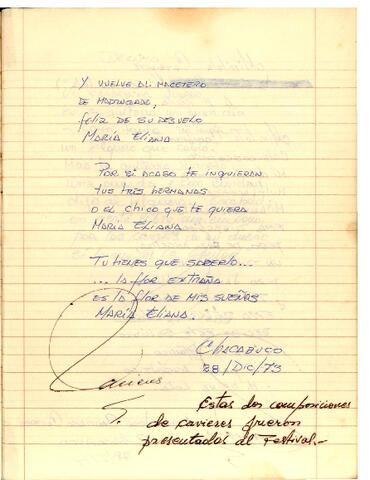 Y VUELVE AL MACETERO
DE MADRUGADA,
FELIZ DE SU DESVELO
MARÍA ELIANA
POR SI ACASO TE INQUIERAN
TUS TRES HERMANAS
O EL CHICO QUE TE QUIERA
MARÍA ELIANA
TU TIENES QUE SABERLO...
... LA FLOR EXTRAÑA
ES LA FLOR DE MIS SUEÑOS
MARÍA ELIANA.
CHACABUCO
28/DIC/73
Estas dos composiciones
de cavieres fueron
presentadas al Festival.-